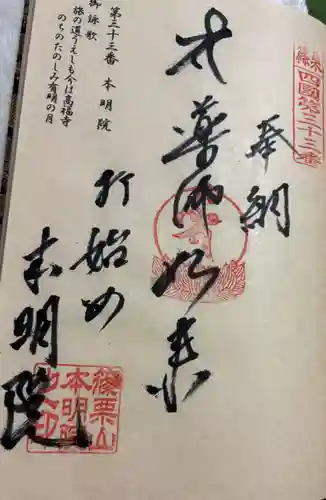 篠栗四國第三十三番
奉納
薬師如来
打始め
本明院
第三十三番 本明院
御詠歌
旅の道うえしも今は高福寺
のちのたのしみ有明の月
篠栗山
本明院
之印